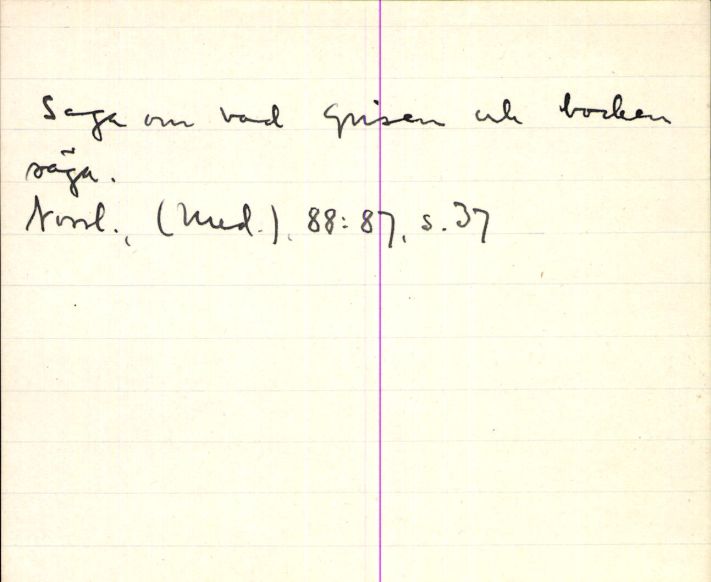 Saga om vad grisen och bocken
säga.
Norrl., (Med.), 88:87, s. 37